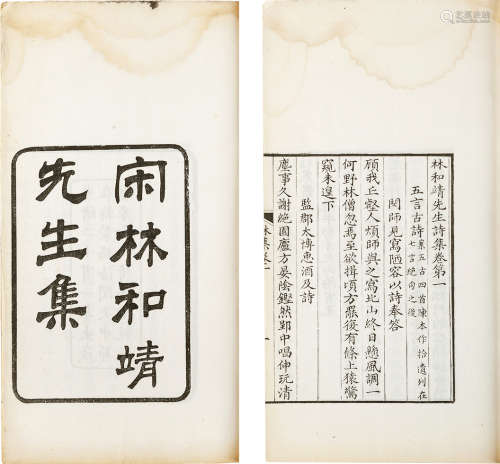 宋林和靖
先生集
林和靖先生詩集卷第一
五言古詩 案五古四首陳本作拾遺列在
七言絕句之後
閔師見寫陋容以詩奉答
顧我丘壑人煩師與之寫北山終日懸風調一
何野林僧忽焉至欲揖頃方罷復有條上猿驚
窺未遑下
監郡太博惠酒及詩
塵事久謝絕園廬方晏陰鏗然郢中唱伸玩清
林集卷一